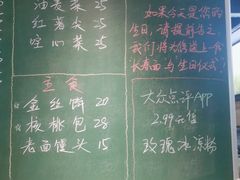 油麦菜 25
红薯尖 25
空心菜 25
主食
金丝饼 20
核桃包 28
老面馒头 15
如果今天是您的
生日，请提前告之
我们将为您送上一份
长寿面与生日仪式！
大众点评APP
2.99元售
玫瑰冰凉粉